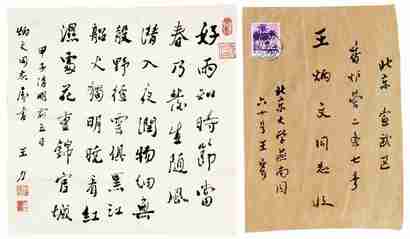 好雨知時節當
春乃發生隨風
潛入夜潤物細無
聲野徑雲俱黑江
船火獨明曉看紅
濕處花重錦官城
甲子清明前三日
炳文同志屬書
王力
北京宣武區
香炉营二巷七号
王炳文同志收
北京大學燕南園
六十号王寄